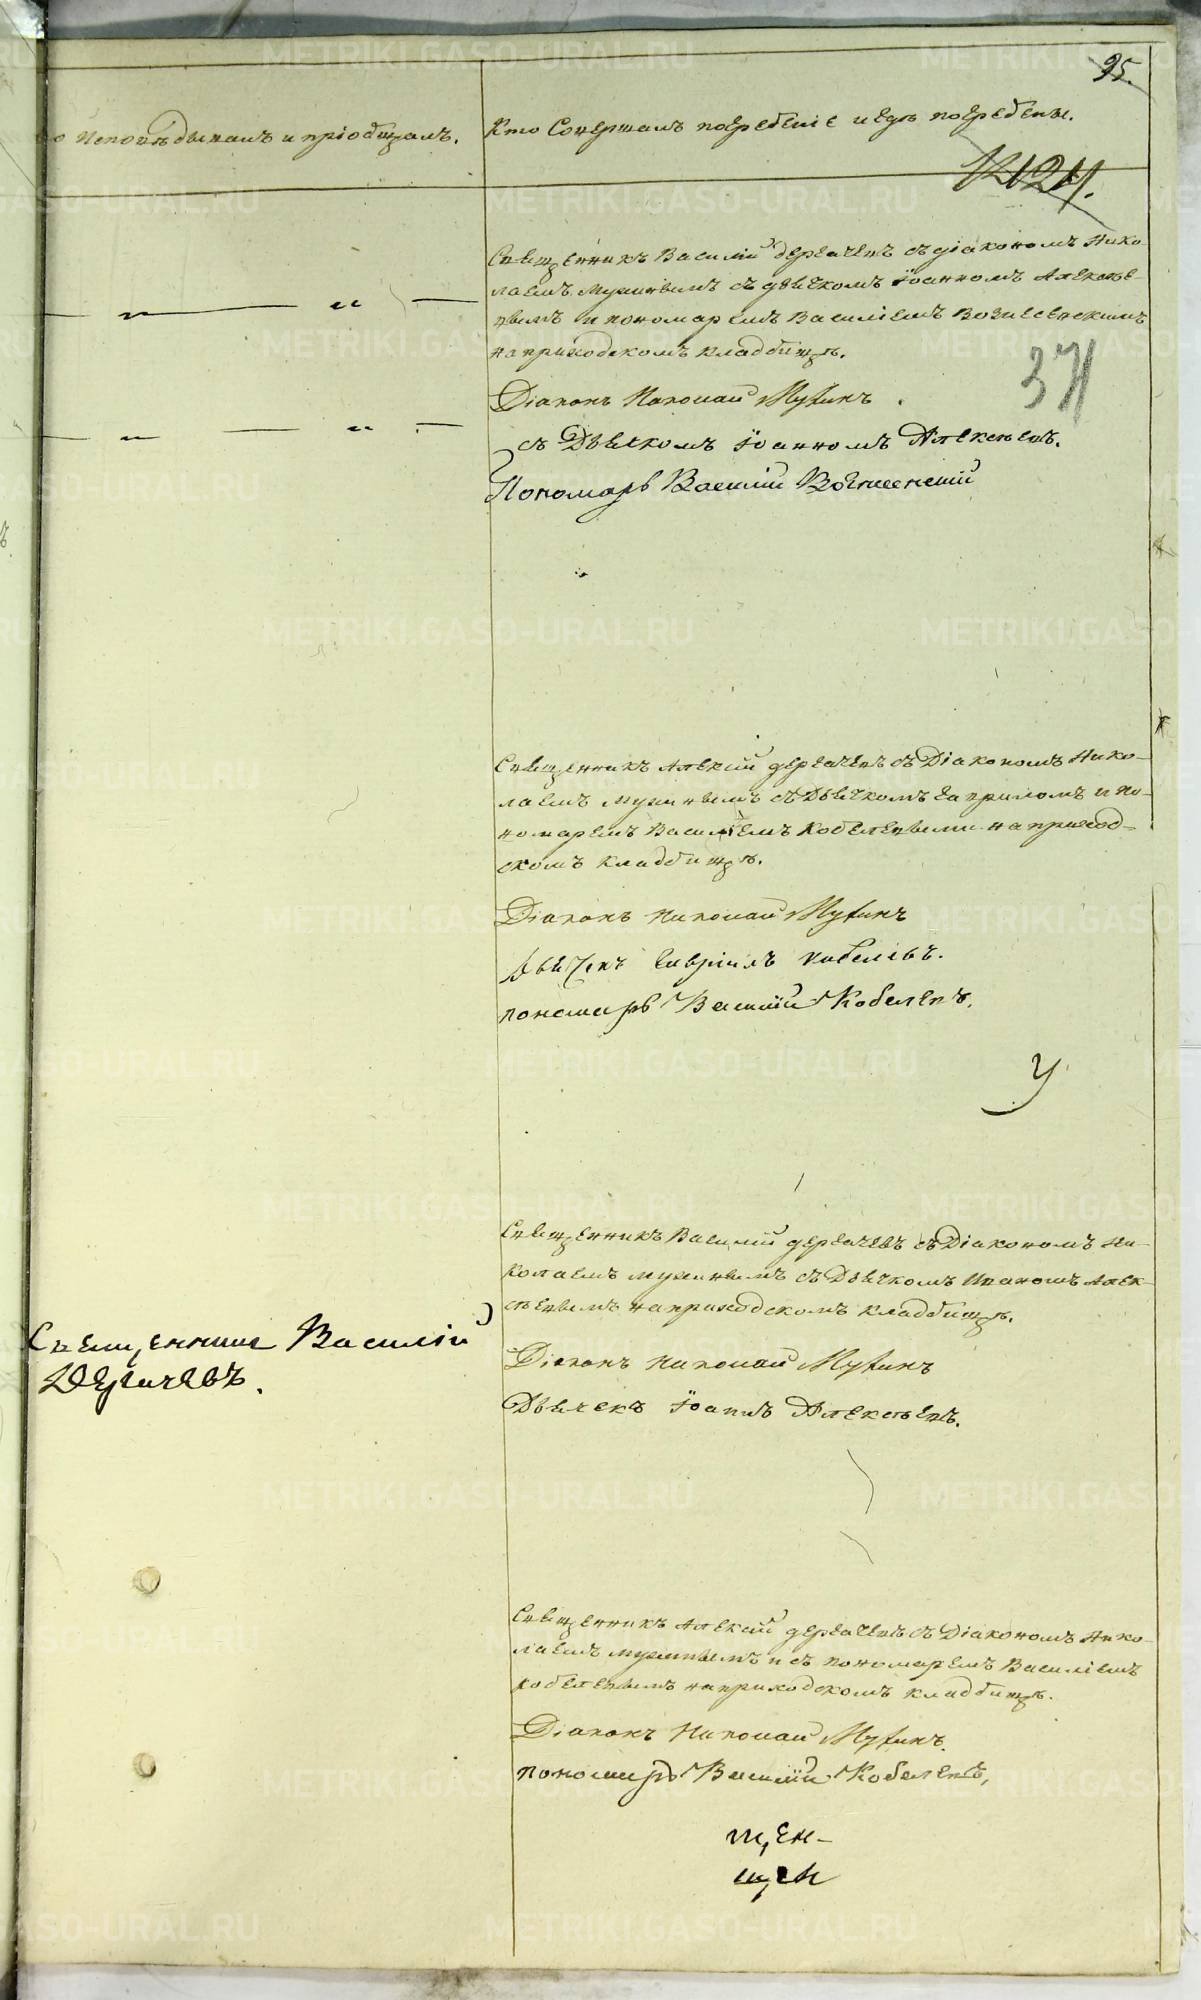 95.
Кто Исповѣдывалъ и пріобщалъ.
Кто Совершалъ погребеніе и гдѣ погребены.
1212 4.
Священникъ Василій Дергачевъ съ діакономъ Нико-
лаемъ Мухинымъ съ дьячкомъ Іоанномъ Алексѣе-
вымъ и пономаремъ Василіемъ Вознесенскимъ
на приходскомъ кладбищѣ.
37
Діаконъ Николай Мухинъ
съ Дьячкомъ Іоанномъ Алексѣевъ.
Пономарь Василій Вознесенскій
Священникъ Алексій Дергачевъ съ Діакономъ Нико-
лаемъ Мухинымъ съ Дьячкомъ Гавріиломъ и по-
номаремъ Василіемъ Кобелевыми на приход-
скомъ кладбищѣ.
Діаконъ Николай Мухинъ
Дьячекъ Гавріилъ Кобелевъ.
пономарь Василій Кобелевъ.
У
Священникъ Василій Дергачевъ съ Діакономъ Ни-
колаемъ Мухинымъ съ Дьячкомъ Иваномъ Алек-
сѣевымъ на приходскомъ кладбищѣ.
Священникъ Василій
Дергачевъ.
Діаконъ Николай Мухинъ
Дьячекъ Іоаннъ Алексѣевъ.
Священникъ Алексій Дергачевъ съ Діакономъ Нико-
лаемъ Мухинымъ и съ пономаремъ Василіемъ
Кобелевымъ на приходскомъ кладбищѣ.
Діаконъ Николай Мухинъ.
пономарь Василій Кобелевъ,
щен-
щен
METRIKI.GASO-URAL.RU